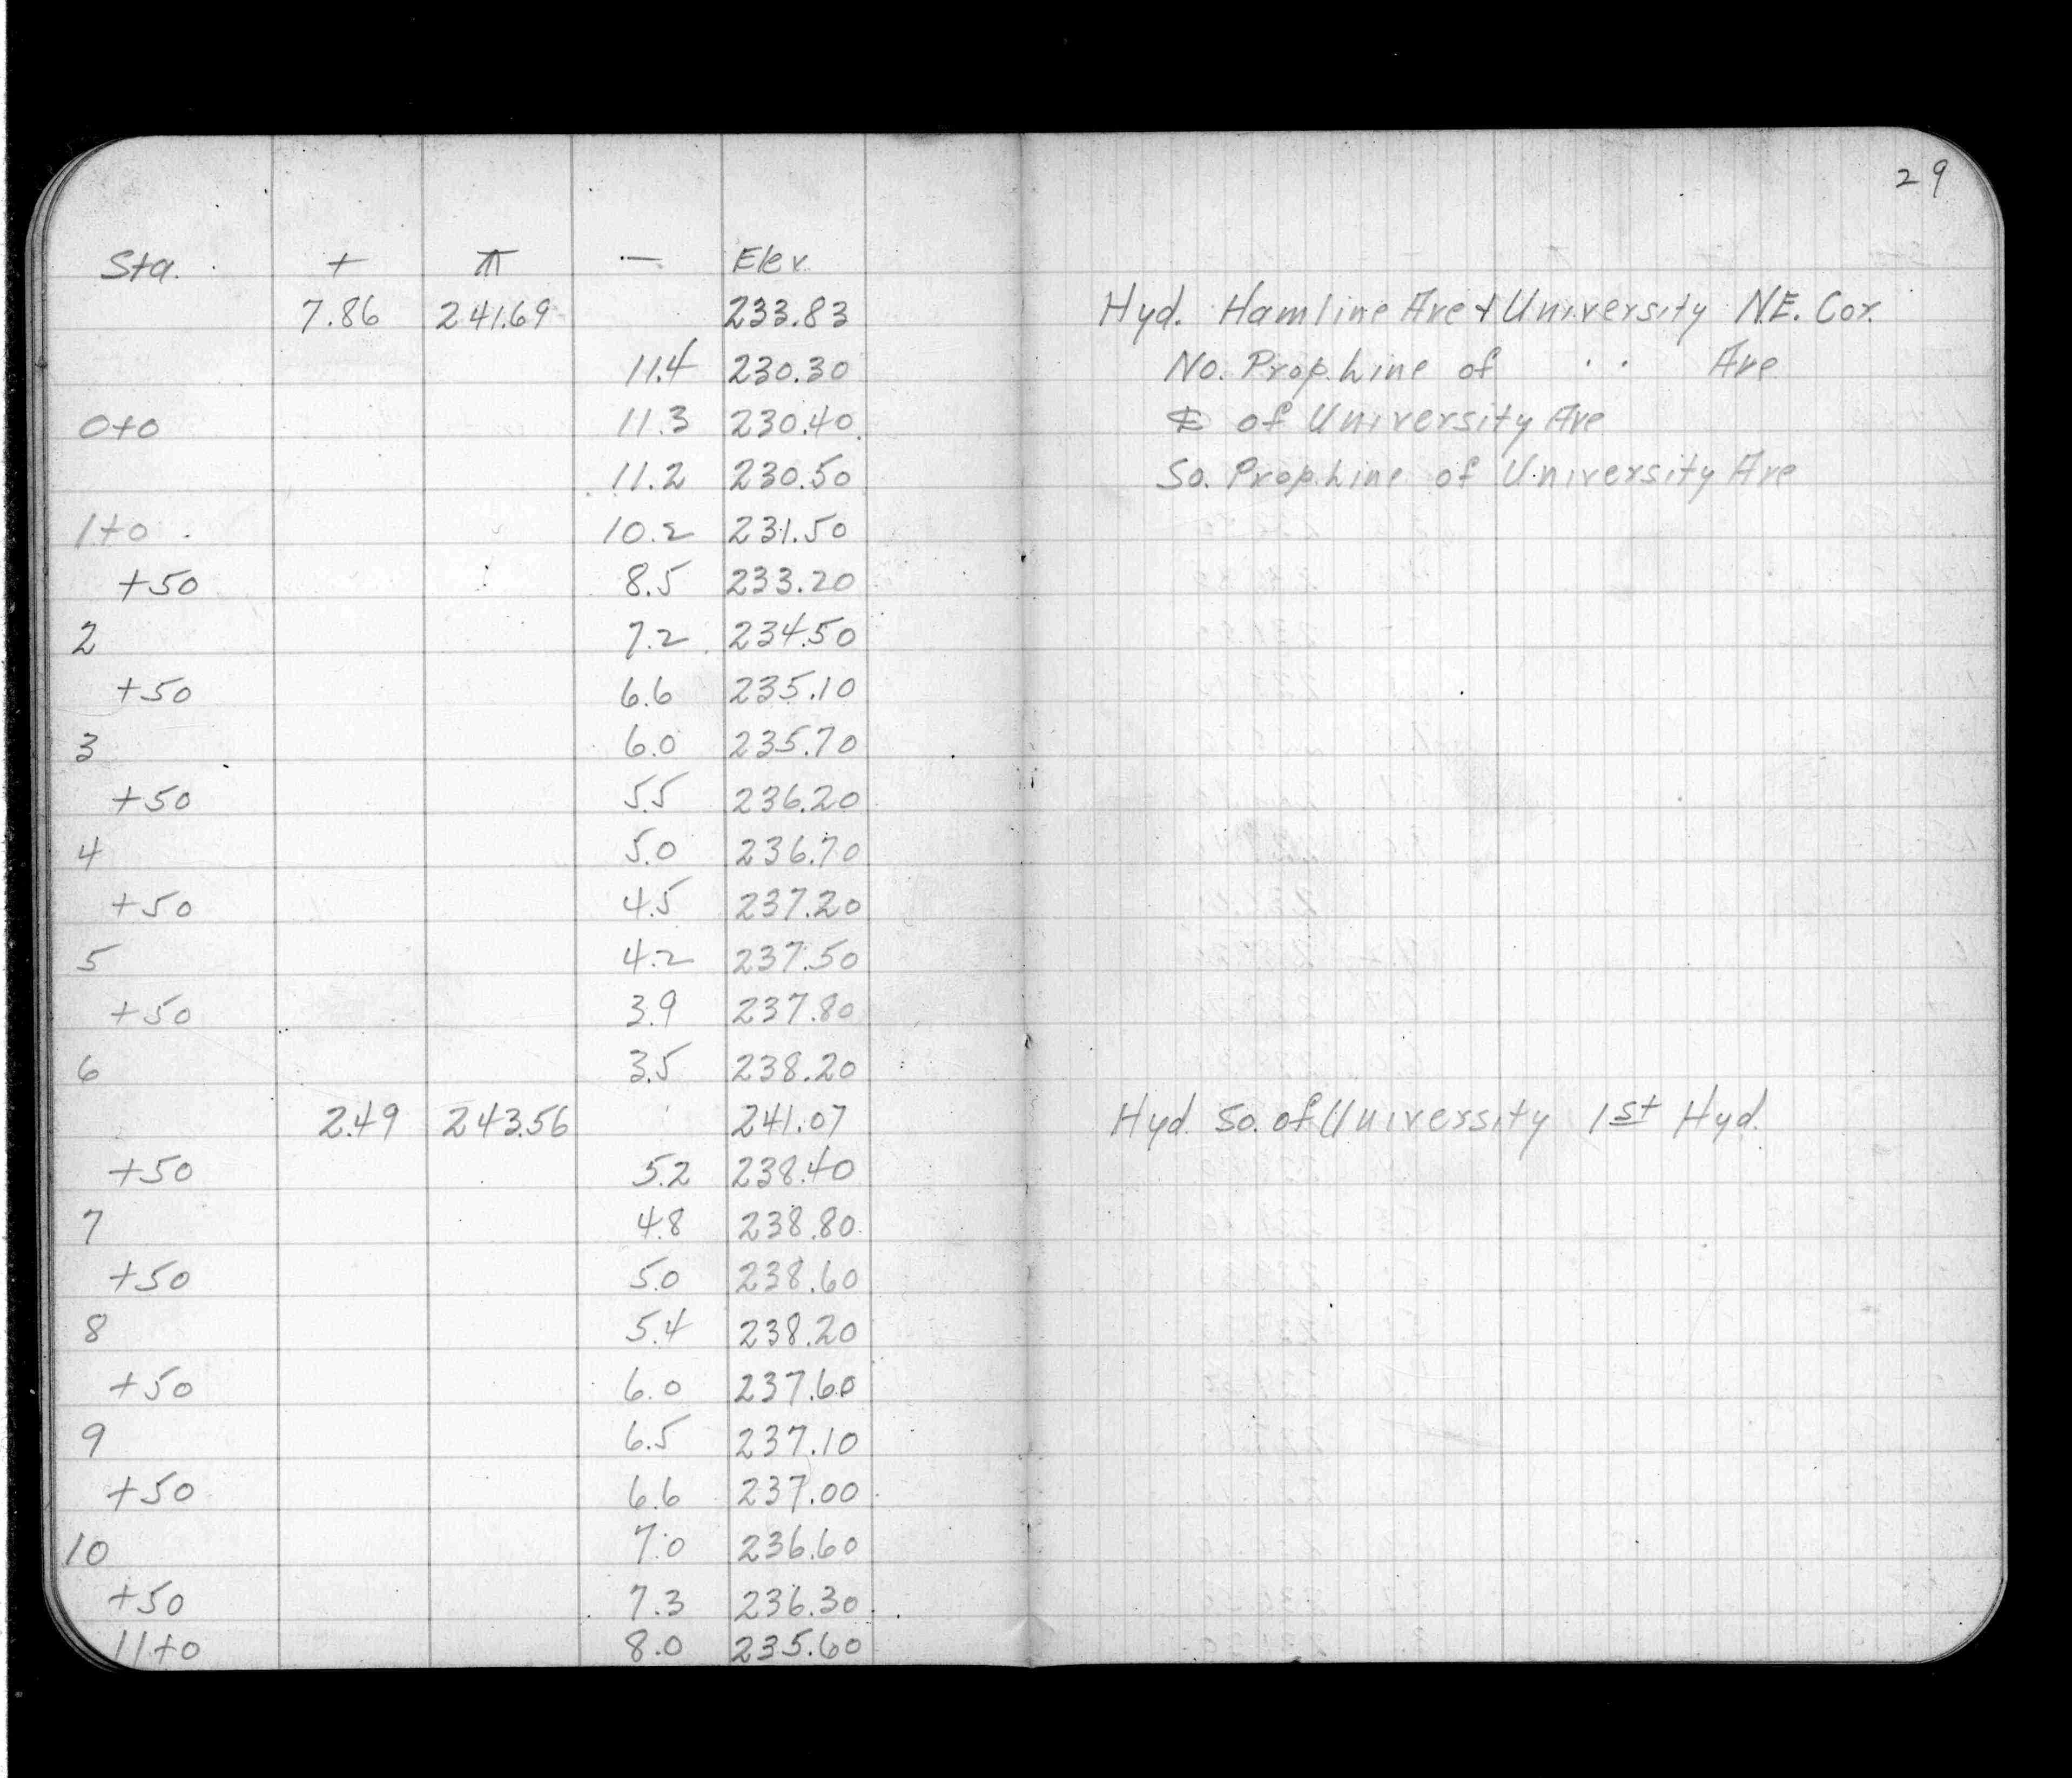 29
Sta. + ⊼ — Elev.
7.86 241.69 233.83 Hyd. Hamline Ave & University N.E. Cor.
11.4 230.30 No. Prop. Line of " Ave
0+0 11.3 230.40 ℄ of University Ave
11.2 230.50 So. Prop. Line of University Ave
1+0 10.2 231.50
+50 8.5 233.20
2 7.2 234.50
+50 6.6 235.10
3 6.0 235.70
+50 5.5 236.20
4 5.0 236.70
+50 4.5 237.20
5 4.2 237.50
+50 3.9 237.80
6 3.5 238.20
2.49 243.56 241.07 Hyd. So. of University 1st Hyd.
+50 5.2 238.40
7 4.8 238.80
+50 5.0 238.60
8 5.4 238.20
+50 6.0 237.60
9 6.5 237.10
+50 6.6 237.00
10 7.0 236.60
+50 7.3 236.30
11+0 8.0 235.60